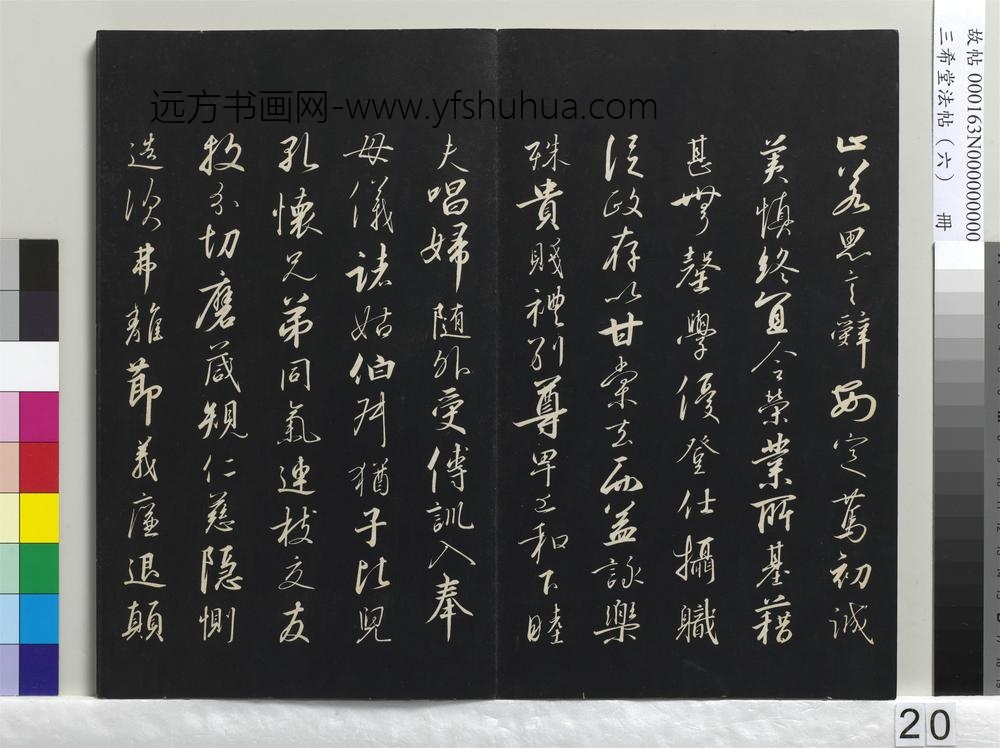 远方书画网-www.yfshuhua.com
止若思言辭安定篤初誠
美慎終宜令榮業所基藉
甚無罄學優登仕攝職
從政存以甘棠去而益詠樂
殊貴賤禮別尊卑上和下睦
夫唱婦隨外受傅訓入奉
母儀諸姑伯叔猶子比兒
孔懷兄弟同氣連枝交友
投分切磨箴規仁慈隱惻
造次弗離節義廉退顛
故帖 000163N000000000
三希堂法帖（六） 冊
20